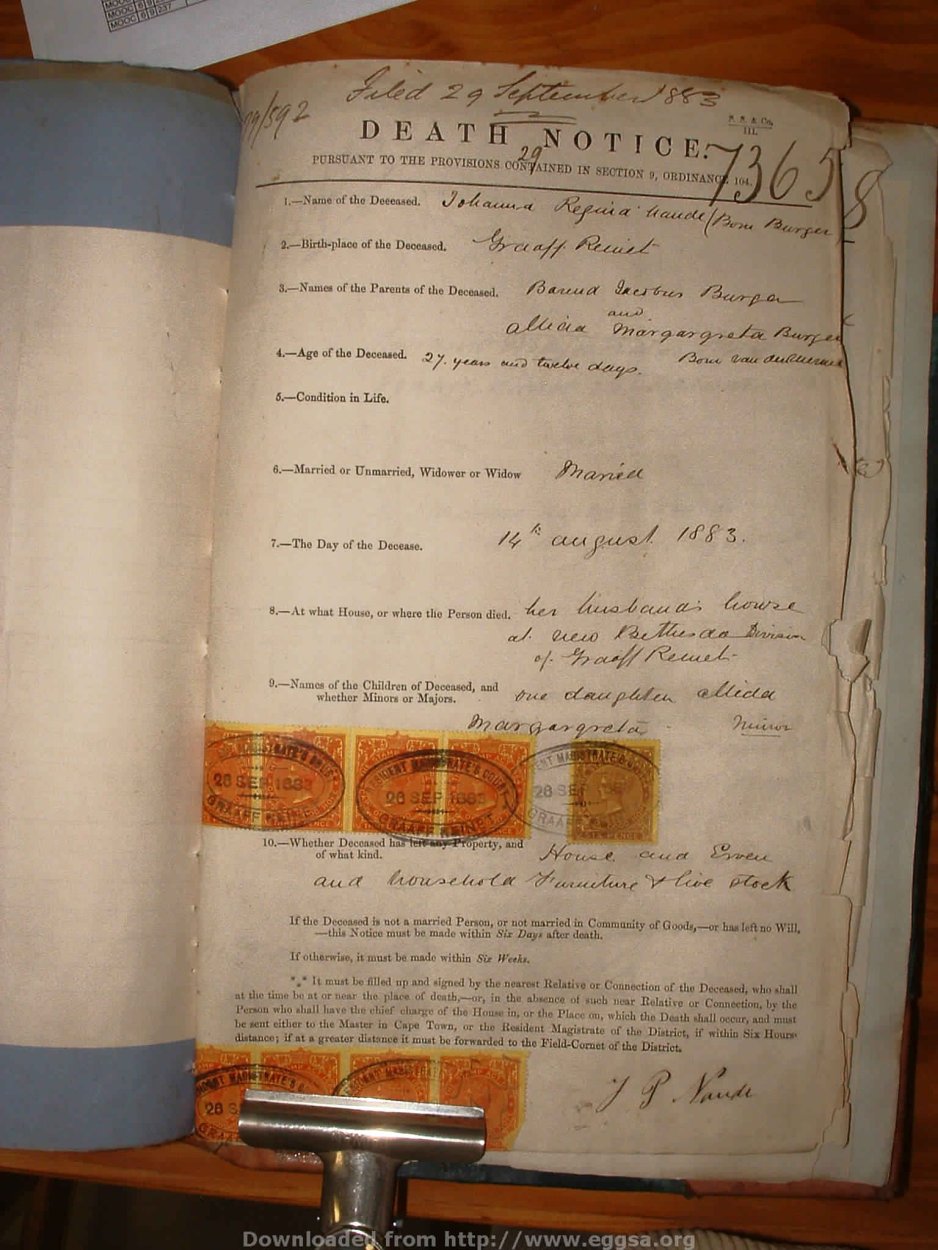 MOOC 6 9
MOOC 6 9 237
Filed 29 September 1883
/592
S. S. & Co.
III.
DEATH NOTICE.
29
73658
PURSUANT TO THE PROVISIONS CONTAINED IN SECTION 9, ORDINANCE 104.
1.—Name of the Deceased. Johanna Regina Naude (Born Burger
2.—Birth-place of the Deceased. Graaff Reinet
3.—Names of the Parents of the Deceased. Barend Jacobus Burger
and
Allida Margargreta Burger
4.—Age of the Deceased. 27. years and twelve days. Born van der Merwe
5.—Condition in Life.
6.—Married or Unmarried, Widower or Widow Maried
7.—The Day of the Decease. 14th august 1883.
8.—At what House, or where the Person died. her husband's house
at new Bethesda Division
of Graaff Reinet
9.—Names of the Children of Deceased, and
whether Minors or Majors. one daughter Allida
Margargreta - Minor
RESIDENT MAGISTRATE'S COURT
26 SEP 1883
GRAAFF REINET
RESIDENT MAGISTRATE'S COURT
26 SEP 1883
GRAAFF REINET
SIX PENCE
10.—Whether Deceased has left any Property, and
of what kind. House and Erven
and household Furniture & live stock
If the Deceased is not a married Person, or not married in Community of Goods,—or has left no Will,
—this Notice must be made within Six Days after death.
If otherwise, it must be made within Six Weeks.
*** It must be filled up and signed by the nearest Relative or Connection of the Deceased, who shall
at the time be at or near the place of death,—or, in the absence of such near Relative or Connection, by the
Person who shall have the chief charge of the House in, or the Place on, which the Death shall occur, and must
be sent either to the Master in Cape Town, or the Resident Magistrate of the District, if within Six Hours
distance; if at a greater distance it must be forwarded to the Field-Cornet of the District.
J P Naude
Downloaded from http://www.eggsa.org